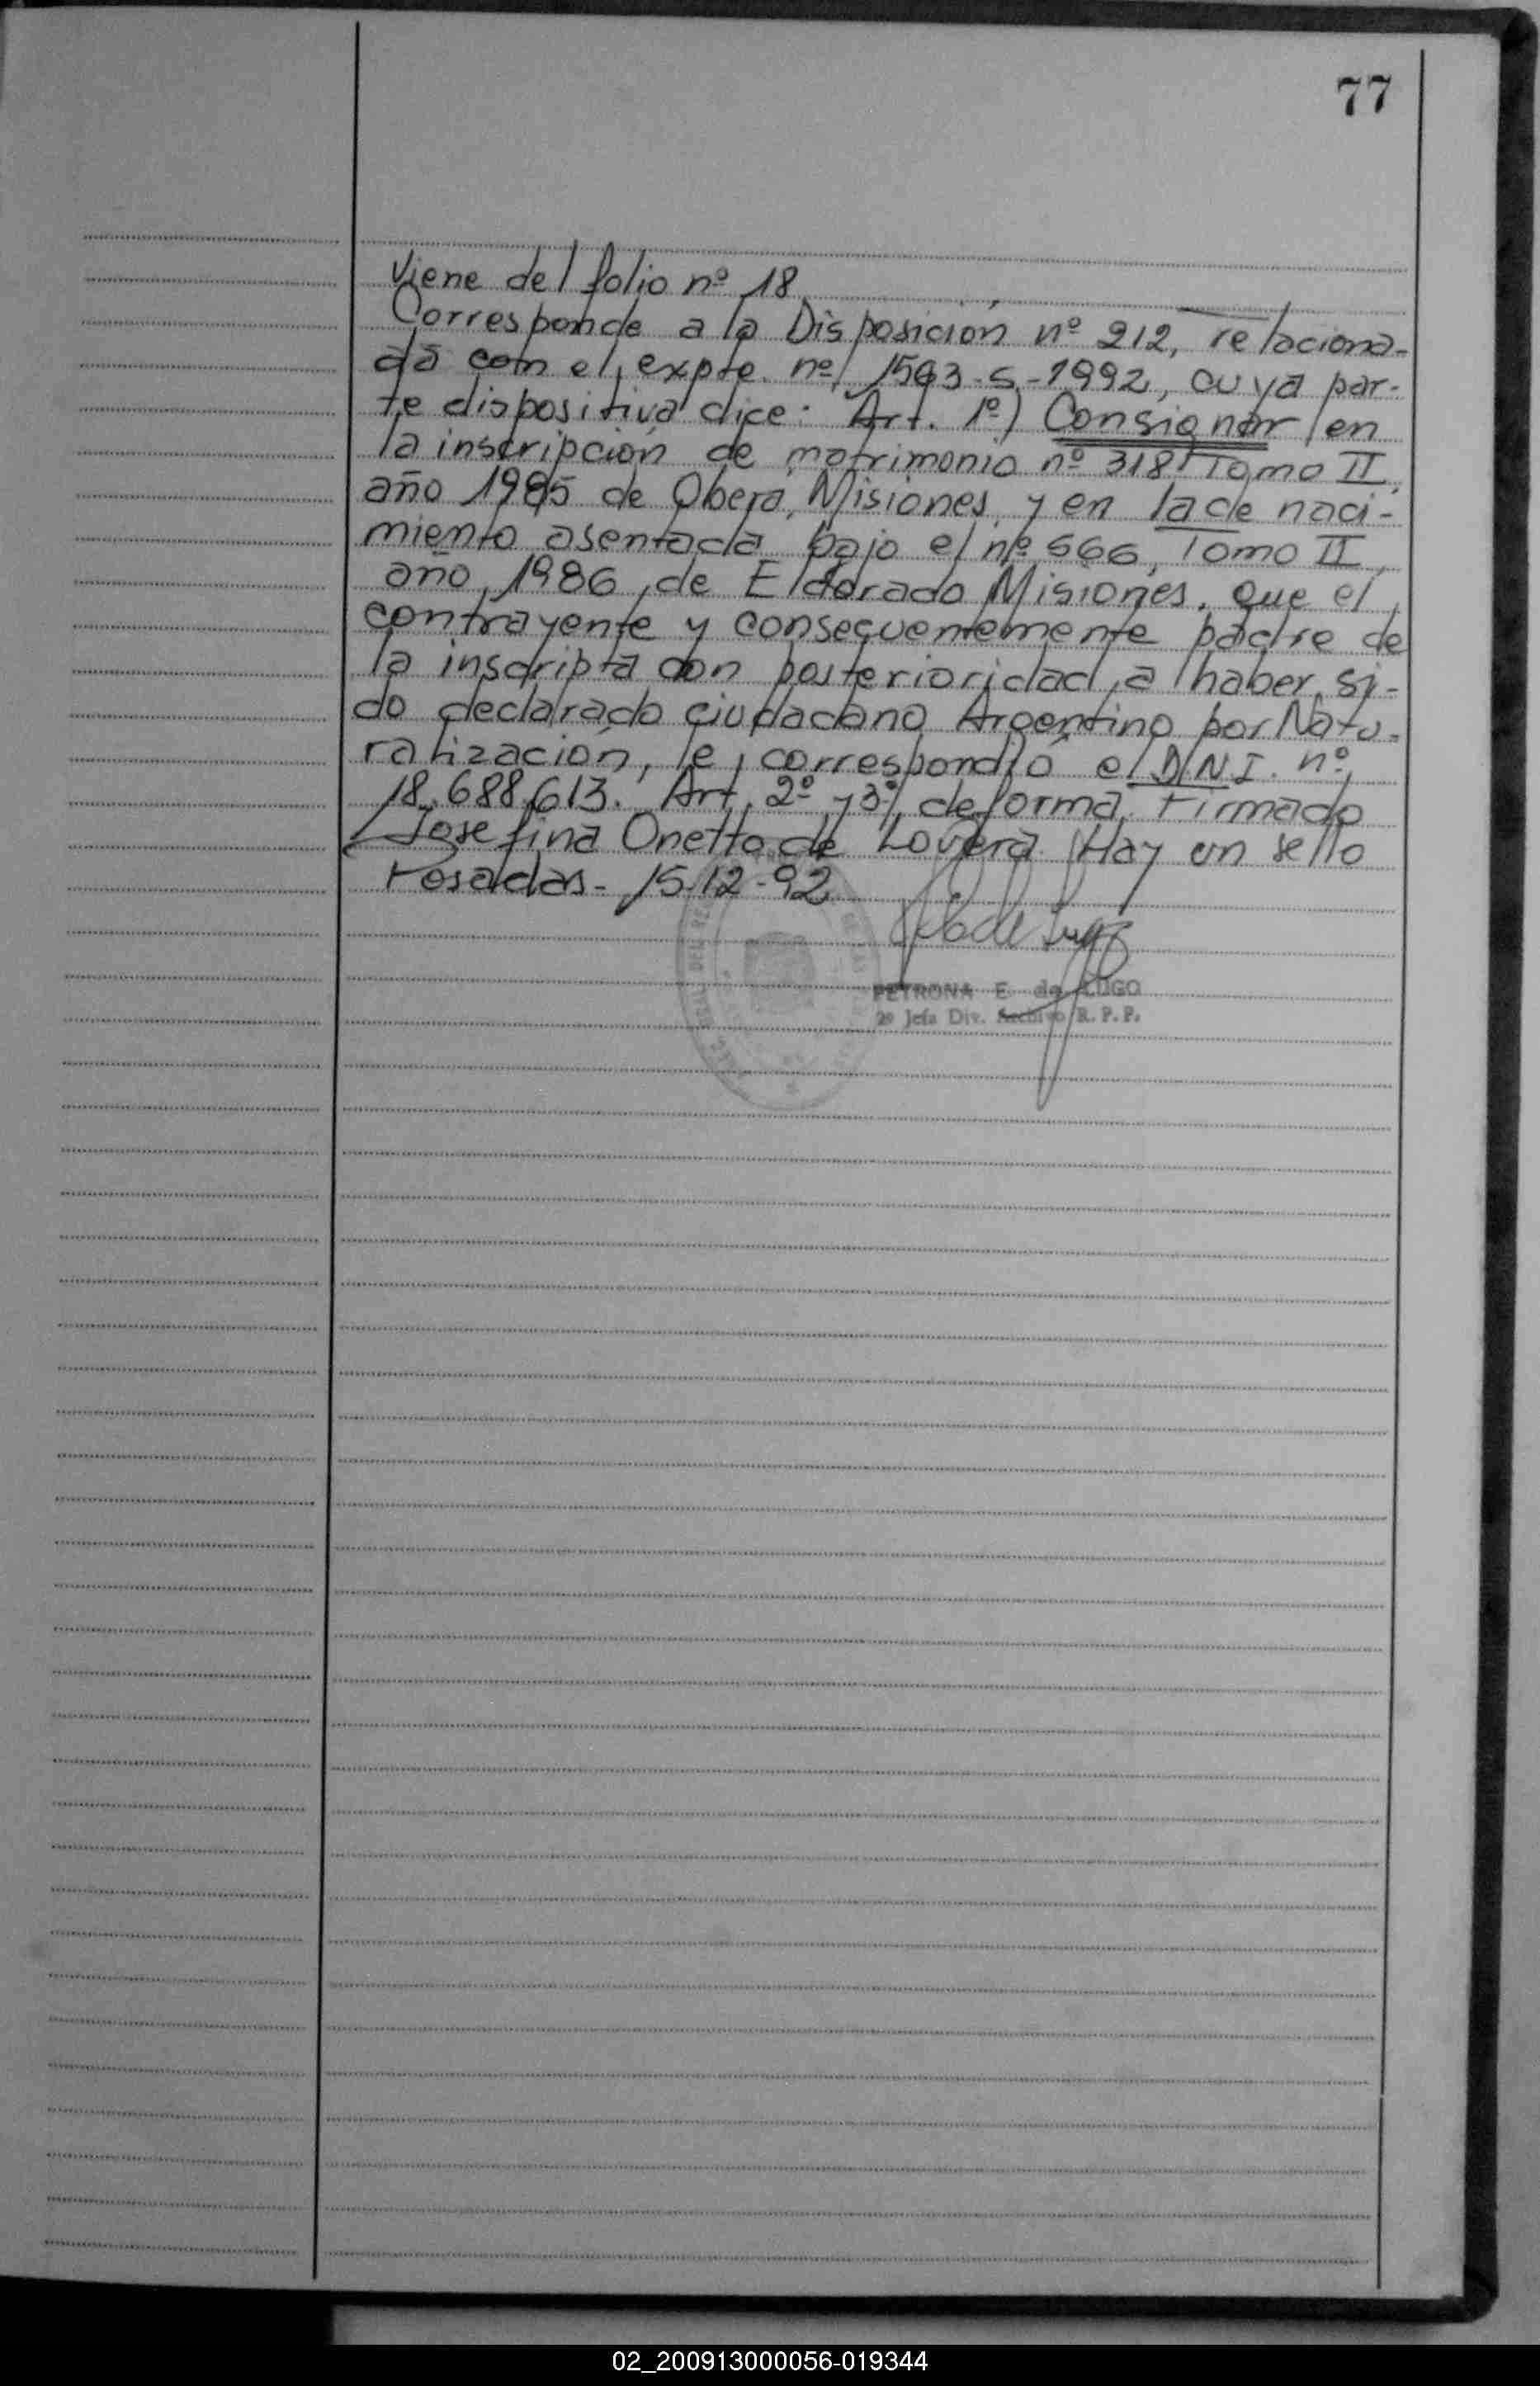 77
Viene del folio nº 18
Corresponde a la Disposición nº 212, relaciona-
da con el expte. nº 1593-S-1992, cuya par-
te dispositiva dice: Art. 1º) Consignar en
la inscripción de matrimonio nº 318 Tomo II,
año 1985 de Oberá, Misiones, y en la de naci-
miento asentada bajo el nº 566, Tomo II,
año 1986, de Eldorado Misiones. que el
contrayente y consecuentemente padre de
la inscripta con posterioridad a haber si-
do declarado ciudadano Argentino por Natu-
ralización, le correspondió el D.N.I. nº
18.688.613. Art. 2º y 3º, de forma, Firmado
Josefina Onetto de Lovera Hay un sello
Posadas- 15-12-92
PETRONA E. de LUGO
2º Jefa Div. Archivo R. P. P.
02_200913000056-019344